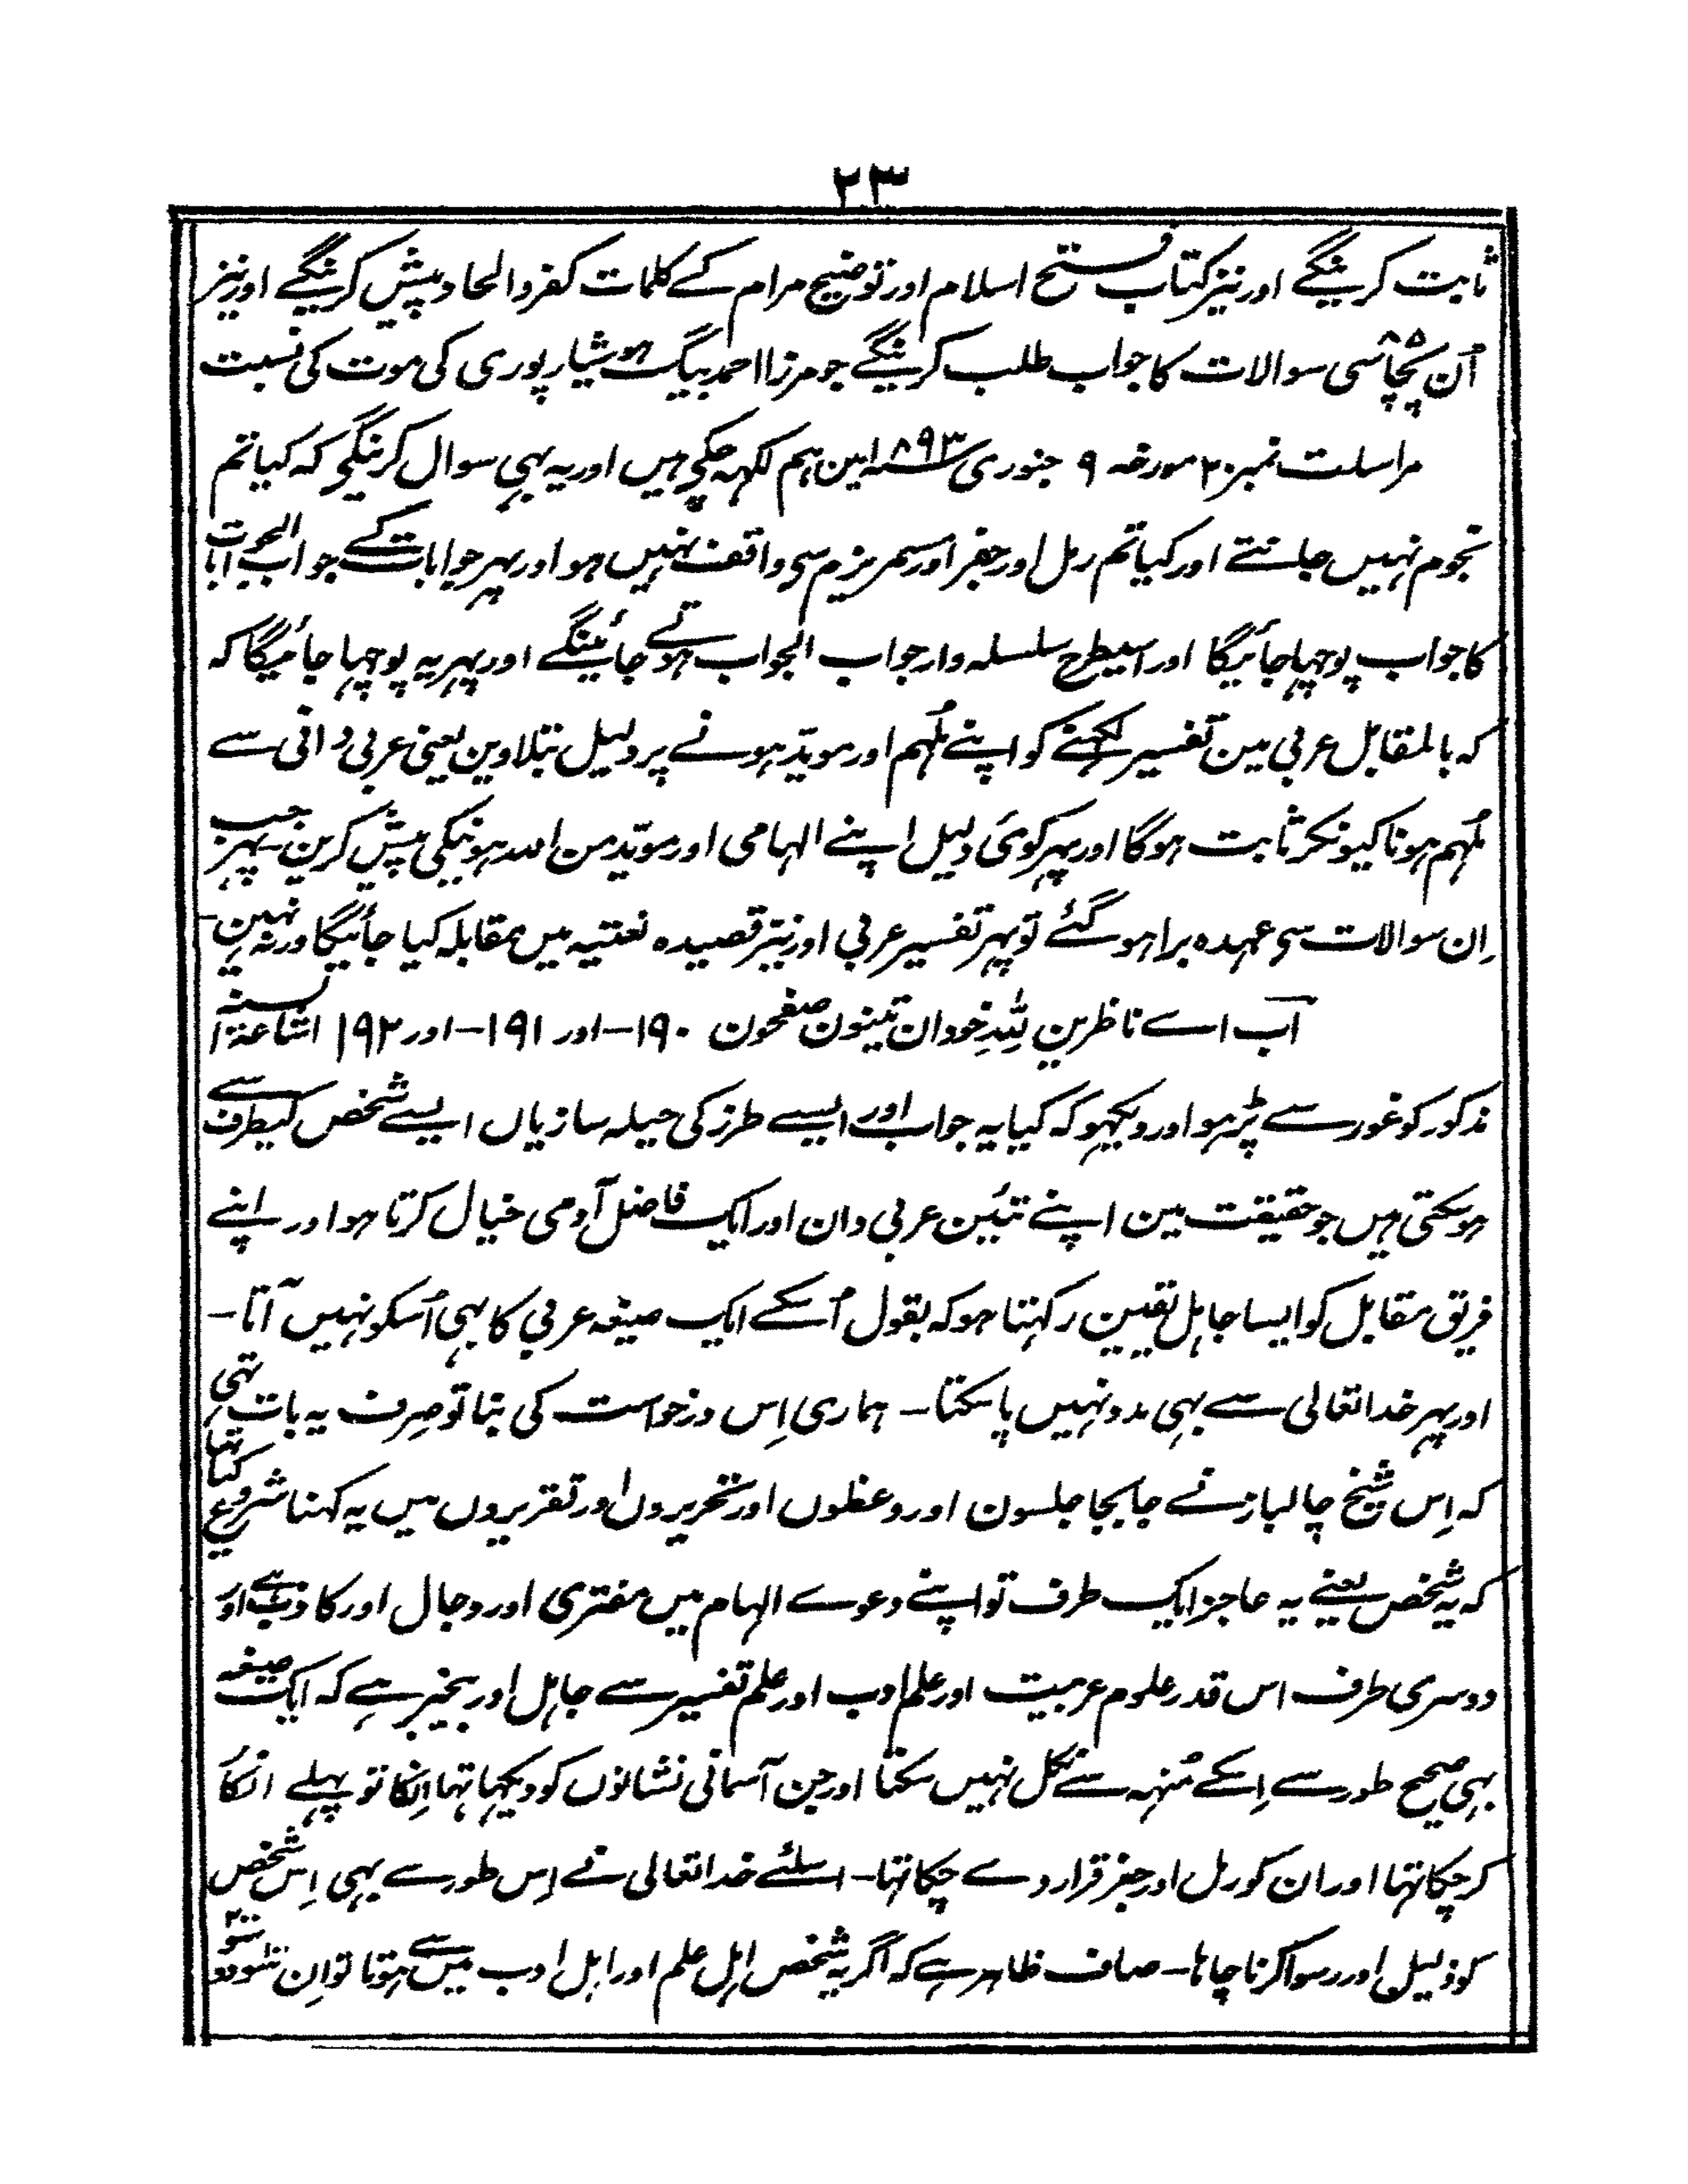 ۲۳
ثابت کرینگے اور نیز کتاب فتح اسلام اور توضیح مرام کے کلمات کفر و الحاد پیش کرینگے اور نیز
اُن پچاسی ۸۵ سوالات کا جواب طلب کرینگے جو مرزا احمد بیگ ہوشیارپوری کی موت کی نسبت
مراسلت نمبر ۲۰ مورخہ ۹ جنوری ۱۸۹۳ء میں ہم لکہہ چکے ہیں اور یہ بہی سوال کرینگے کہ کیا تم
نجوم نہیں جانتے اور کیا تم رمل اور جفر اور مسمریزم سی واقف نہیں ہو اور پہر جوابات کے جواب الجوابات
کا جواب پوچہا جائیگا اور اسیطرح سلسلہ وار جواب الجواب ہوتے جائینگے اور پہر یہ پوچہا جائیگا کہ
کہ بالمقابل عربی مین تفسیر لکہنے کو اپنے مُلہم اور مویّد ہونے پر دلیل بتلاوین یعنی عربی دانی سے
مُلہم ہونا کیونکر ثابت ہوگا اور پہر کوئی دلیل اپنے الہامی اور مویّد من اللہ ہونیکی پیش کرین پہر جب
اِن سوالات سی عہدہ برا ہو گئے تو پہر تفسیر عربی اور نیز قصیدہ نعتیہ میں مقابلہ کیا جائیگا ورنہ نہین۔
اَب اے ناظرین لِلّٰہِ خود ان تینون صفحون ۱۹۰۔ اور ۱۹۱۔ اور ۱۹۲ اشاعۃ السنہ
مذکور کو غور سے پڑہو اور دیکہو کہ کیا یہ جواب اور ایسے طرز کی حیلہ سازیاں ایسے شخص کیطرف سے
ہوسکتی ہیں جو حقیقت مین اپنے تئین عربی دان اور ایک فاضل آدمی خیال کرتا ہو اور اپنے
فریق مقابل کو ایسا جاہل یقین رکہتا ہو کہ بقول اُسکے ایک صیغہ عربی کا بہی اُسکو نہیں آتا۔
اور پہر خدا تعالی سے بہی مدد نہیں پا سکتا۔ ہماری اِس درخواست کی بنا تو صِرف یہ بات تہی
کہ اِس شیخ چالباز نے جابجا جلسون اور وعظوں اور تحریروں اور تقریروں میں یہ کہنا شروع کیا تہا
کہ یہ شخص یعنے یہ عاجز ایک طرف تو اپنے دعوے الہام میں مفتری اور دجال اور کاذب ہے اور
دوسری طرف اس قدر علوم عربیت اور علم ادب اور علم تفسیر سے جاہل اور بیخبر ہے کہ ایک صیغہ
بہی صحیح طور سے اِسکے مُنہہ سے نکل نہیں سکتا اور جن آسمانی نشانوں کو دیکہا تہا اِنکا تو پہلے انکار
کر چکا تہا اور ان کو رمل اور جفر قرار دے چکا تہا۔ اسلئے خدا تعالی نے اِس طور سے بہی اِس شخص
کو ذلیل اور رسوا کرنا چاہا۔ صاف ظاہر ہے کہ اگر یہ شخص اہل علم اور اہل ادب میں سے ہوتا تو اِن